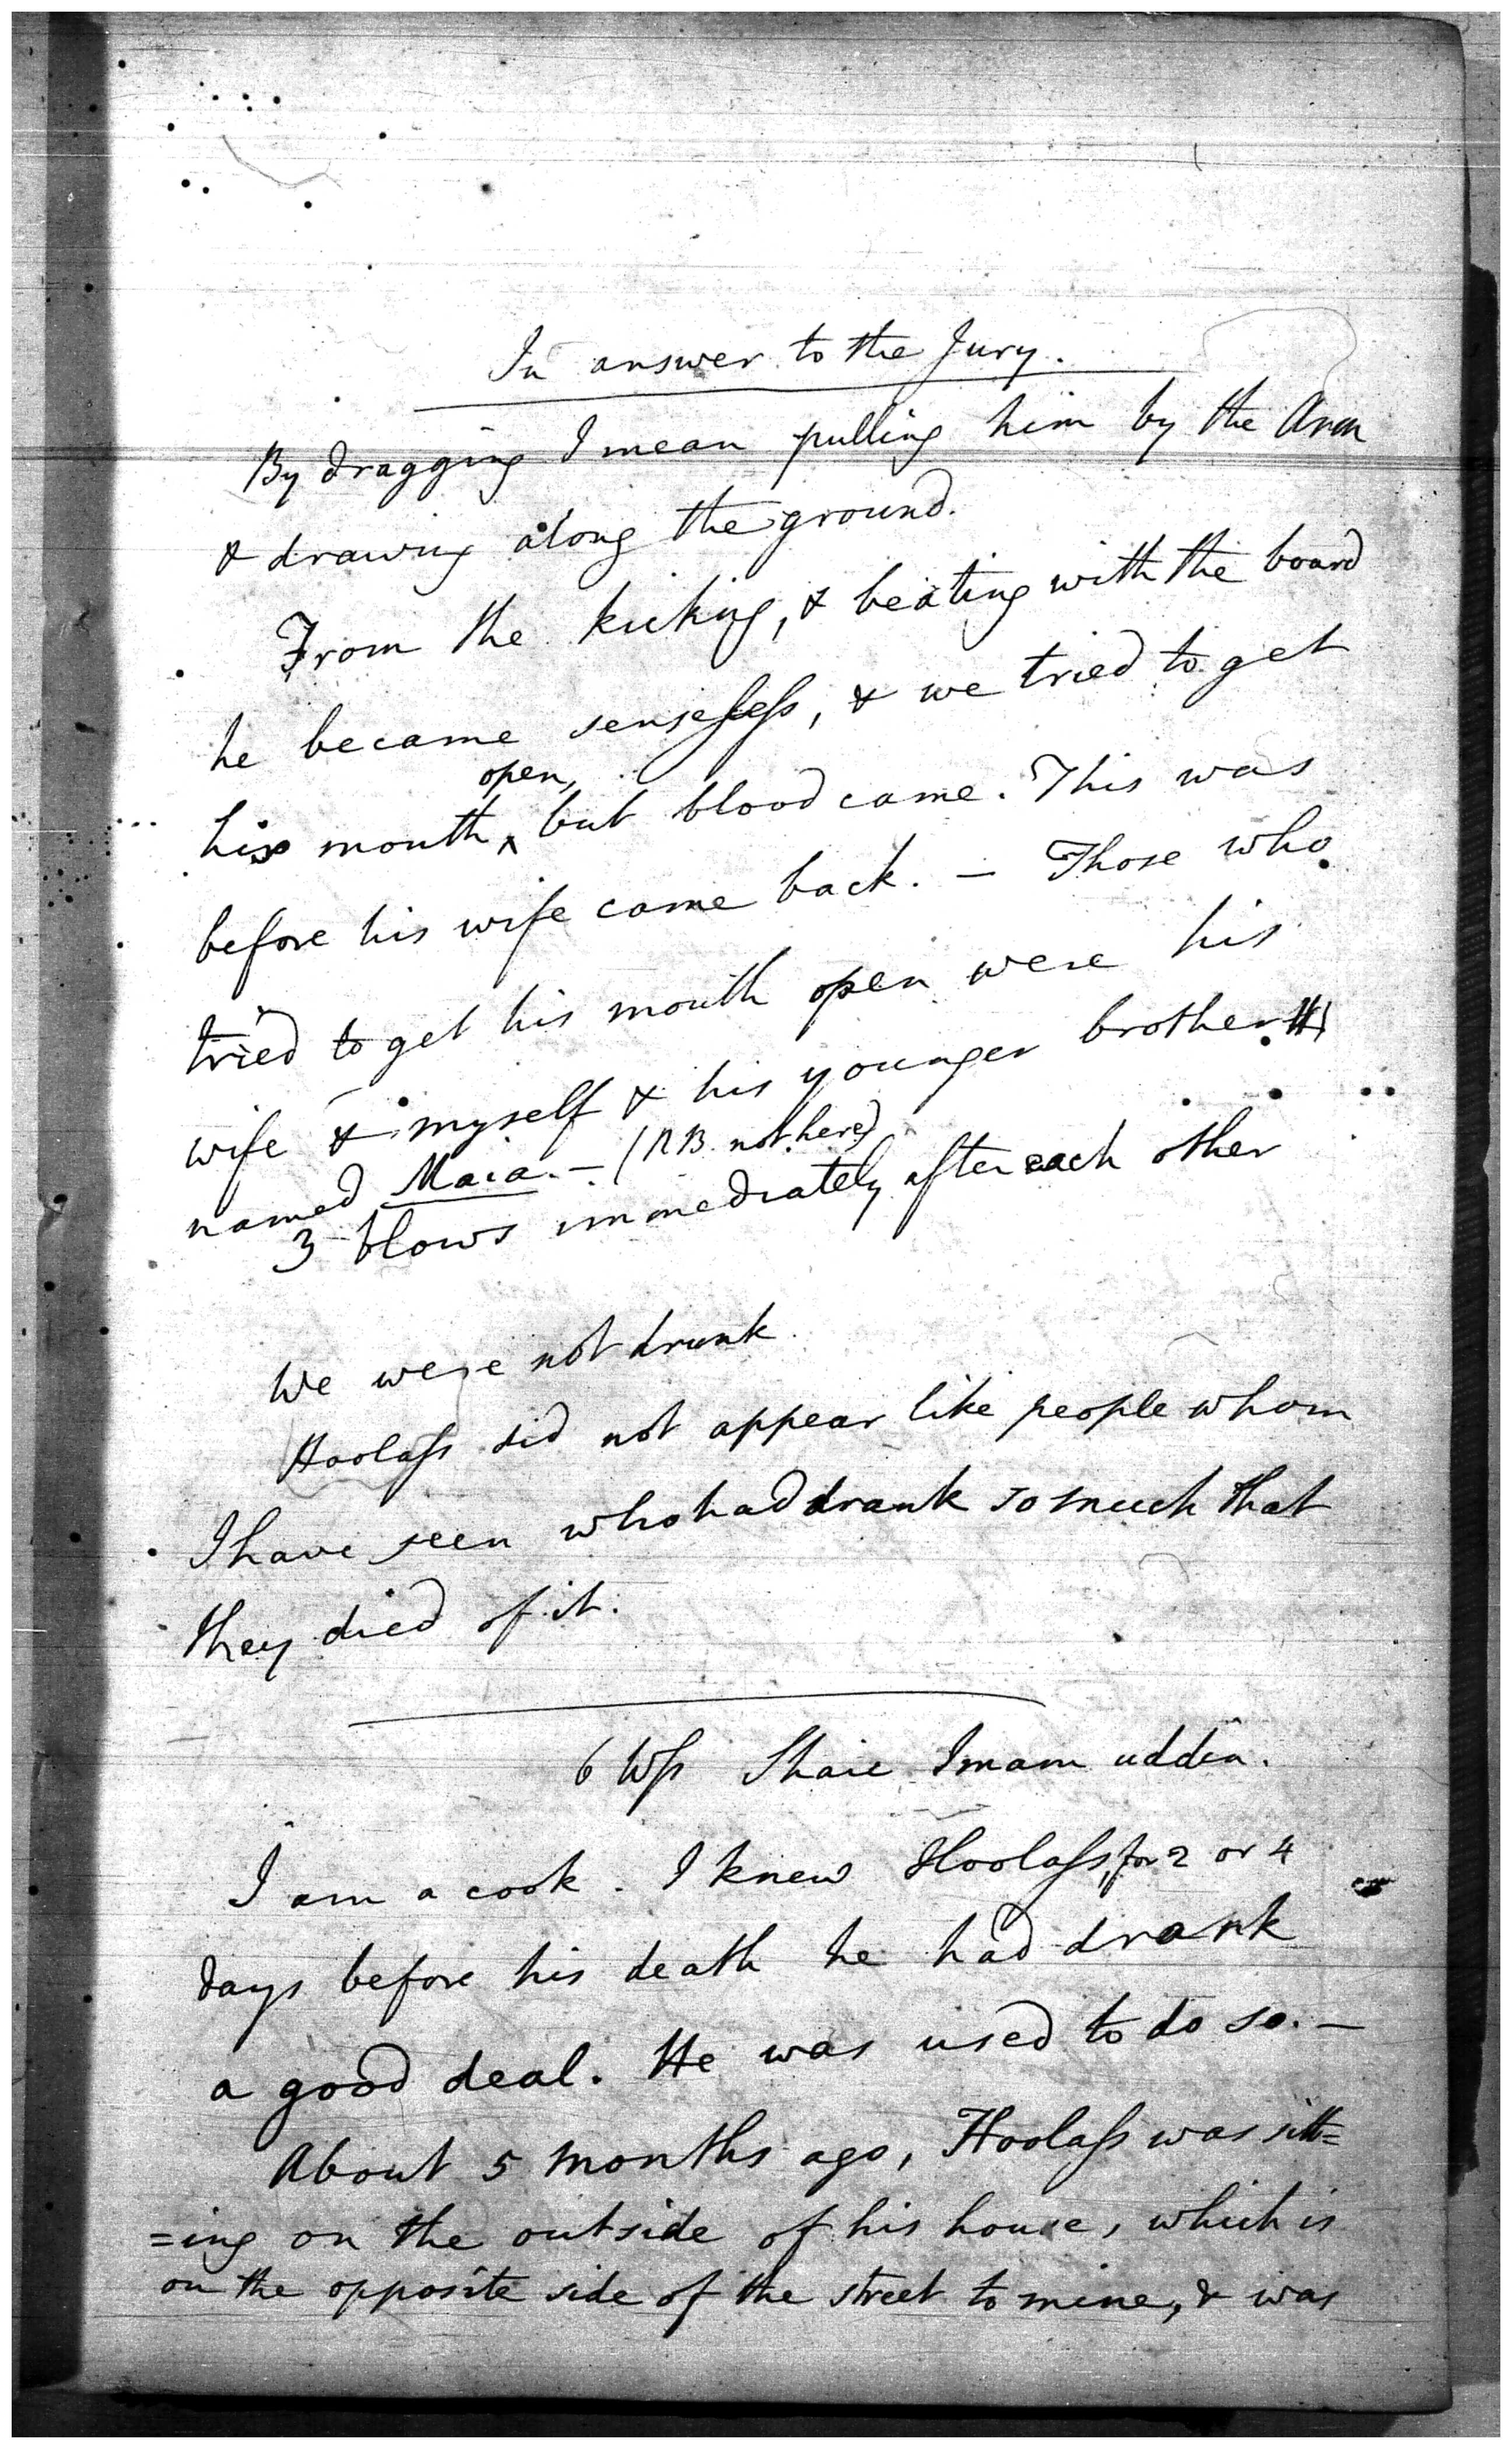 In answer to the Jury.
By dragging I mean pulling him by the Arm
& drawing along the ground.
From the kicking, & beating with the board
he became senseless, & we tried to get
his mouth open, but blood came. This was
before his wife came back. – Those who
tried to get his mouth open were his
wife & myself & his younger brother
named Maia. – (NB. not here)
3 blows immediately after each other
We were not drunk
Hoolass did not appear like people whom
I have seen who had drank so much that
they died of it.
6 Wss Shaic Imam uddin.
I am a cook. I knew Hoolass, for 2 or 4
days before his death he had drank
a good deal. He was used to do so. –
About 5 months ago, Hoolass was sitt=
=ing on the outside of his house, which is
on the opposite side of the street to mine, & was